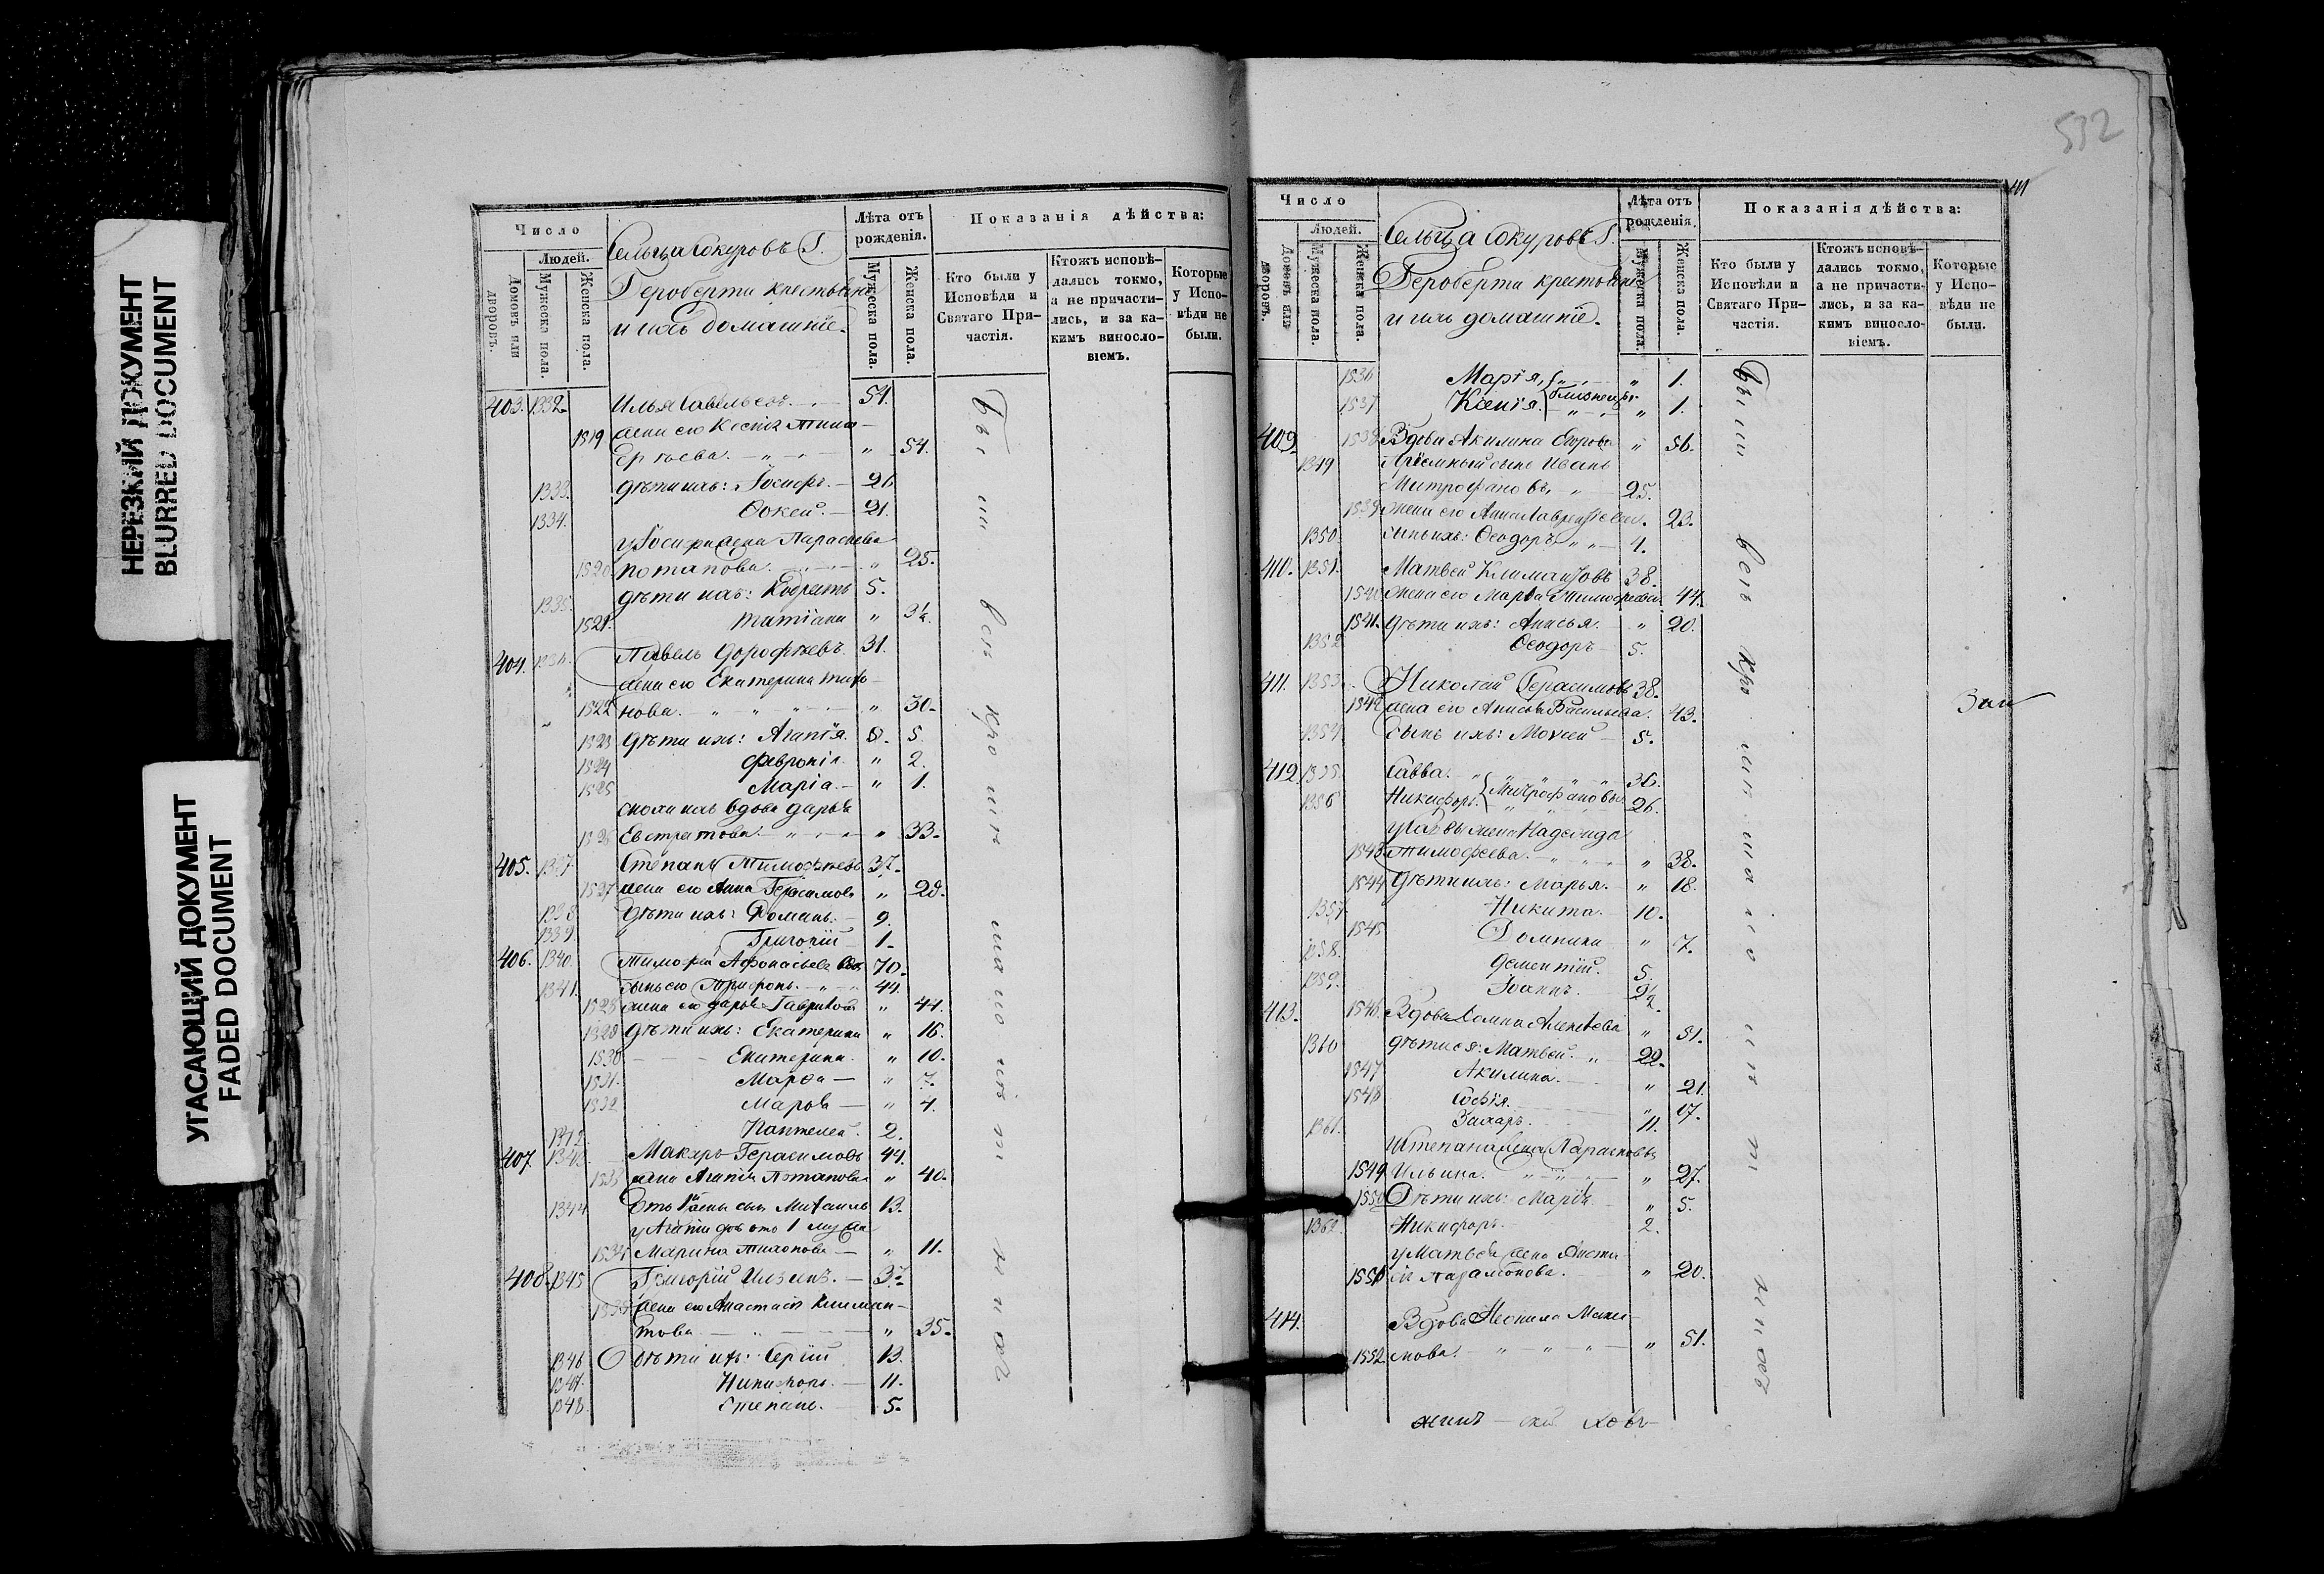 НЕРЕЗКИЙ ДОКУМЕНТ
BLURRED DOCUMENT
УГАСАЮЩИЙ ДОКУМЕНТ
FADED DOCUMENT
Число
Людей.
Домовъ или дворовъ.
Мужеска пола.
Женска пола.
Сельца Сокуровъ Г.
Героберти крестьяне
и ихъ домашніе.
Лѣта отъ рожденія.
Мужеска пола.
Женска пола.
Показанія дѣйства:
Кто были у Исповѣди и Святаго Причастія.
Ктожъ исповѣдались токмо, а не причастились, и за какимъ винословіемъ.
Которые у Исповѣди не были.
403. 1332. Илья Савельевъ. 54.
1519 жена его Ксенія
„ 54.
1333. дѣти ихъ: Іосифъ. 26
1334. Фокей. 21.
у Іосифа жена Параскева
1520. Потапова. „ 25.
1335. дѣти ихъ: Кодратъ 5.
1521. Татіана „ 3/4.
404. 1336. Павелъ Дорофѣевъ 31.
жена его Екатерина Тихо-
1522 нова. „ 30.
1523 дѣти ихъ: Агапія. 5
1524 Февронія „ 2.
1525 Марія. „ 1.
сноха ихъ вдова Дарья
1526 Евстратова. „ 33.
405. 1337. Степанъ Тимофѣевъ 37.
1527 жена его Анна Герасимова „ 28.
1338 дѣти ихъ: Романъ. 9.
1339 Григорій 1.
406. 1340. Тимофей Афонасьевъ вдов. 70.
1341. сынъ его Трифонъ. 44.
1528 жена его Дарья Гаврилова „ 44.
1529 дѣти ихъ: Екатерина „ 16.
1530 Екатерина „ 10.
1531. Марфа „ 7.
1532 Марфа „ 4.
1342. Пантелей. 2.
407. 1343. Макаръ Герасимовъ 44.
1533 жена Агапія Потапова „ 40.
1344 Отъ 1й жены сынъ Михаилъ 13.
у Агапіи дочь отъ 1 мужа
1534 Марина Тихонова „ 11.
408. 1345 Григорій Ильинъ. 37.
1535 жена его Анастасія Климан-
това „ 35.
1346 дѣти ихъ: Сергій 13.
1347. Никифоръ. 11.
1348. Степанъ. 5.
Были все кро
532
111
Число
Людей.
Домовъ или дворовъ.
Мужеска пола.
Женска пола.
Сельца Сокуровъ Г.
Героберти крестьяне
и ихъ домашніе.
Лѣта отъ рожденія.
Мужеска пола.
Женска пола.
Показанія дѣйства:
Кто были у Исповѣди и Святаго Причастія.
Ктожъ исповѣдались токмо, а не причастились, и за какимъ винословіемъ.
Которые у Исповѣди не были.
1536 Марія, „ 1.
1537 Ксенія. близнецы. „ 1.
409. 1538 Вдова Акилина Егорова „ 56.
1349 Пріемный сынъ Иванъ
Митрофановъ 25.
1539 жена его Анна Лаврентіева. 23.
1350. сынъ ихъ: Ѳеодоръ 4.
410. 1351. Матвей Климантовъ 38.
1540 жена его Марфа Тимофеева 44.
1541. дѣти ихъ: Анисья. „ 20.
1352 Ѳеодоръ 5.
411. 1353. Николай Герасимовъ 38.
1542 жена его Анисья Васильева. 43.
1354 сынъ ихъ: Моисей 5.
412. 1355. Савва. 36.
1356 Никифоръ. Митрофановы 26.
у Саввы жена Надежда
1543 Тимофеева. „ 38.
1544 дѣти ихъ: Марья. „ 18.
1357 Никита. 10.
1545 Домника „ 7.
1358. Дементій. 5.
1359. Іоаннъ. 1/2.
413. 1546 Вдова Домна Алексѣева „ 51.
1360 дѣти ея: Матвей. 22.
1547 Акилина. „ 21.
1548 Софія. „ 17.
1361. Захаръ. 11.
у Степана жена Параскева
1549 Ильина. „ 27.
1550 Дѣти ихъ: Марія „ 5.
1362. Никифоръ. 2.
у Матвея жена Анаста-
1551 сія Парамонова. „ 20.
414. Вдова Неонила Макси-
1552 мова. „ 51.
Были всѣ кро